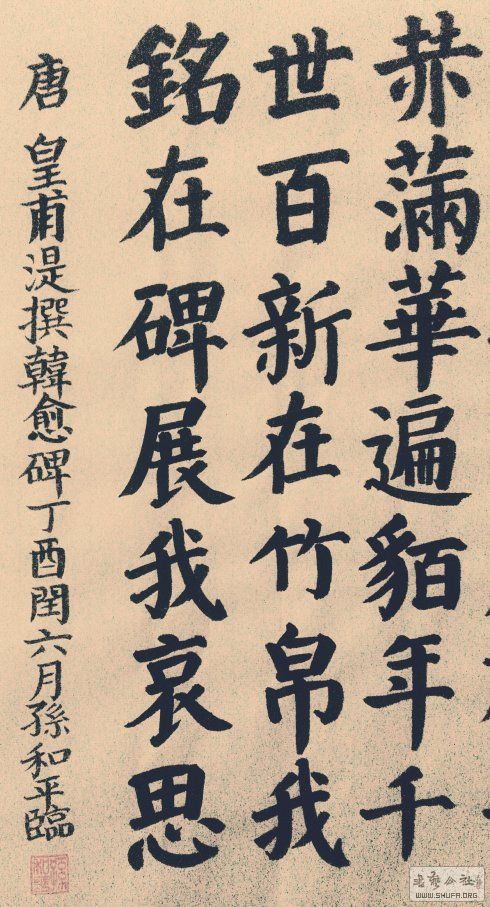 赫滿華遍貊年千
世百新在竹帛我
銘在碑展我哀思
唐 皇甫湜撰韓愈碑丁酉閏六月孫和平臨
WWW.SHUFA.ORG